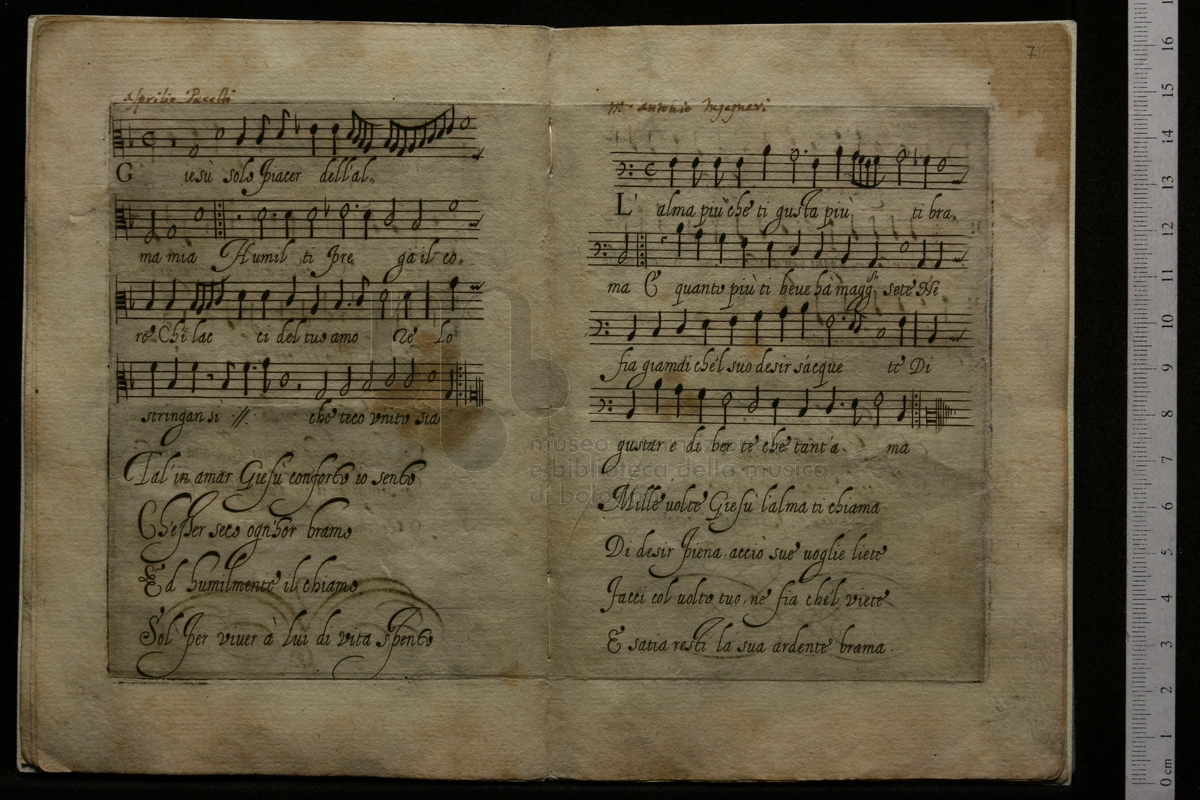 Asprilio Pacelli
Giesù solo piacer dell'al,
ma mia Humil ti pre ga il co,
re Chi lac ci del tuo amo re Lo
stringan sì :/: che teco vnito sia
Tal' in amar Giesù conforto io sento
Ch'esser seco ogn'hor bramo
Ed humilmente il chiamo
Sol per viuer à lui di vita spento
7
M. Antonio Ingegneri
L'alma più che ti gusta più ti bra,
ma E quanto più ti beue hà magg. sete Ne
fia giamai che'l suo desir s'acque te Di
gustar e di ber te che tant'a ma
Mille uolte Giesù l'alma ti chiama
Di desir piena, acciò sue uoglie liete
Facci col uolto tuo, ne fia che'l viete
E satia resti la sua ardente brama.
museo
e biblioteca della musica
di bologna
0 cm 1 2 3 4 5 6 7 8 9 10 11 12 13 14 15 16